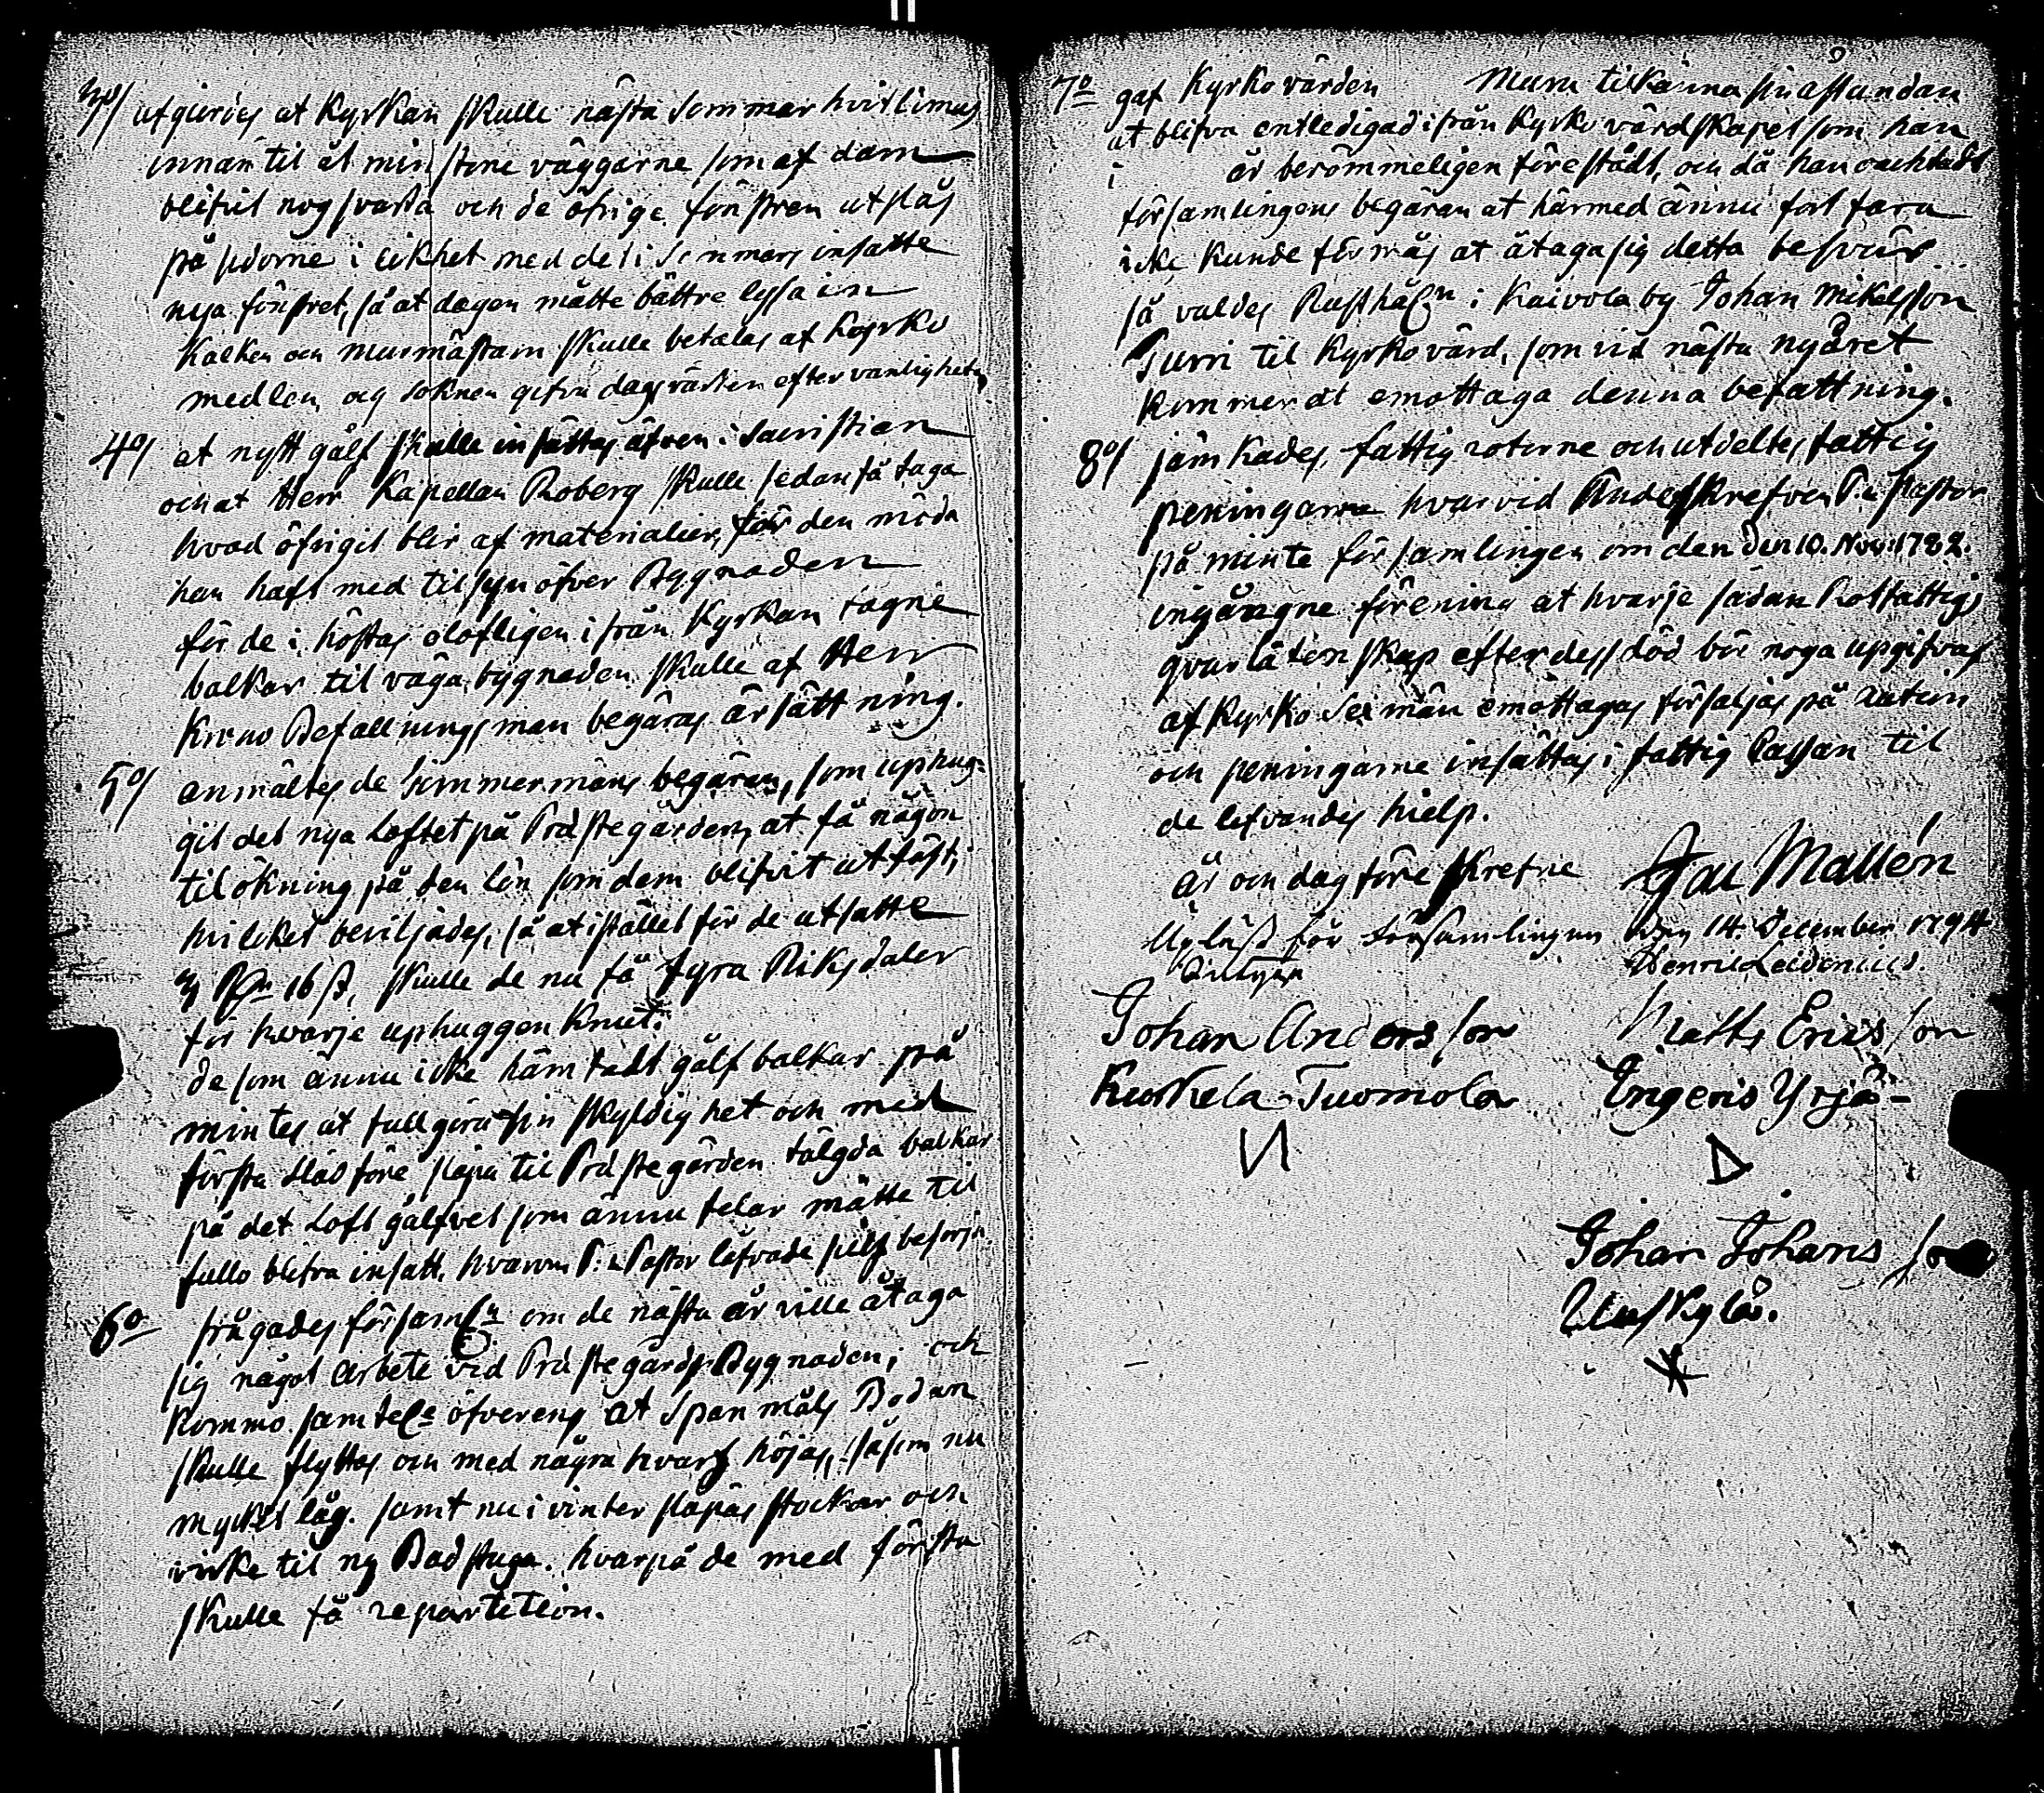 3o/ utgiordes at Kyrkan skulle nästa Sommar hvitlimas
innan til åt minstone väggarne som af dam
blifvit nog svarta och de öfrige fönstren utslås
på sidorne i likhet med det i Sommars insatte
nya fönsret, så at dagen måtte bättre lysa in
Kalken och murmästarn skulle betalas af Kyrko
medlen, och soknen gifva dagsvärken efter vanligheten
4o/ at nytt gålf skulle insättas äfven i Sacristian
och at Herr Kapellan Roberg skulle sedan få taga
hvad öfrigit blir af materialier, för den möda
han haft med tilsyn öfver Byggnaden
för de i höstas olofligen ifrån Kyrkan tagne
balkar til våga bygnaden skulle af Herr
Krono Befallningsman begäras ersättning.
5o/ anmältes de timmermäns begäran, som uphug-
git det nya Loftet på Prästegården, at få någon
tilökning på den lön som dem blifvit utfäst,
hvilket beviljades, så at istället för de utsatte
3 Rdr 16 s, skulle de nu få fyra Riksdaler
för hvarje uphuggen knut.
de som ännu icke hämtadt gålf balkar på
mintes at fullgöra sin skyldighet och med
första slädföre släpa til Prästegården tälgda balkar
på det Loft gålfvet som ännu felar måtte til
fullo blifva insatt, hvarom P: Pastor låfvade sielf besörja.
6o frågades församln om de nästa år ville åtaga
sig något arbete vid Prästegårds Bygnaden, och
kommo samtele öfverens at Spanmåls Bodan
skulle flyttas och med några hvarf höjas, såsom nu
mycket låg. samt nu i vinter släpas stockar och
virke til ny Badstuga. hvarpå de med första
skulle få repartition.
7o gaf Kyrkovärden Muru tilkänna sin åstundan
at blifva entledigad ifrån Kyrkovärdskapet som han
i år berömmeligen förestådt, och då han oachtadt
församlingens begäran at härmed ännu fort fara
icke kunde förmås at åtaga sig detta besvär
så valdes Rusthåln i Kaivola by Johan Mikelsson
Turri til Kyrkovärd, som vid nästa nyåret
kommer at emottaga denna befattning.
8o/ jämkades, fattig roterne och utdeltes fattig
peningarne hvarvid Underskrefven P: Pastor
påminte församlingen om den den 10. Nov: 1782.
ingångne förening at hvarje sådan Rotfattigs
qvarlåtenskap efter dess död bör noga upgifvas
af Kyrko Sexmän emottagas försäljas på auction
och peningarne insättas i fattig Cassan til
de lefvandes hielp.
År och dag före skrefne Jac Mallén
Upläst för Församlingen den 14. December 1794
Henric Leidenius.
Johan Andersson Matts Ericsson
Kuskela-Tuomola Ingeris Yrjä-
И D
Johan Johansson
Uuskylä.